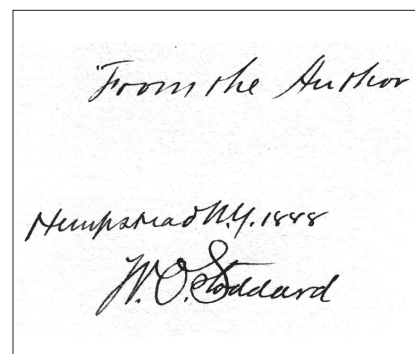 "From the Author
Hempstead N.Y. 1888
W. O. Stoddard